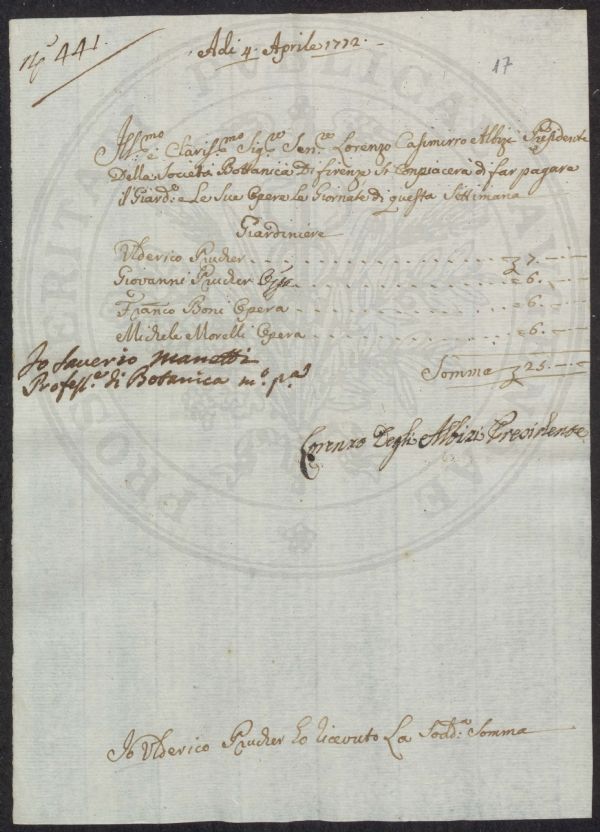 N.º 441.
Adi 4. Aprile 1772.
17
Ill.mo e Clariss.mo Sig.re Sen.re Lorenzo Casimirro Albizi Presidente
Della Società Bottanica Di firenze Si Conpiacerà di far pagare
il Giard.e e Le Sue Opere le Giornate di questa Settimana
Giardiniere
Ulderico Prucher 7.
Giovanni Prucher 6.
Fran.co Boni Opera 6.
Michele Morelli Opera 6.
Somma 25.
Io Saverio Manetti
Profess.e di Botanica m.o p.a
Lorenzo Degli Albizi Presidente
Io Ulderico Prucher ho ricevuto La Sodd.a Somma